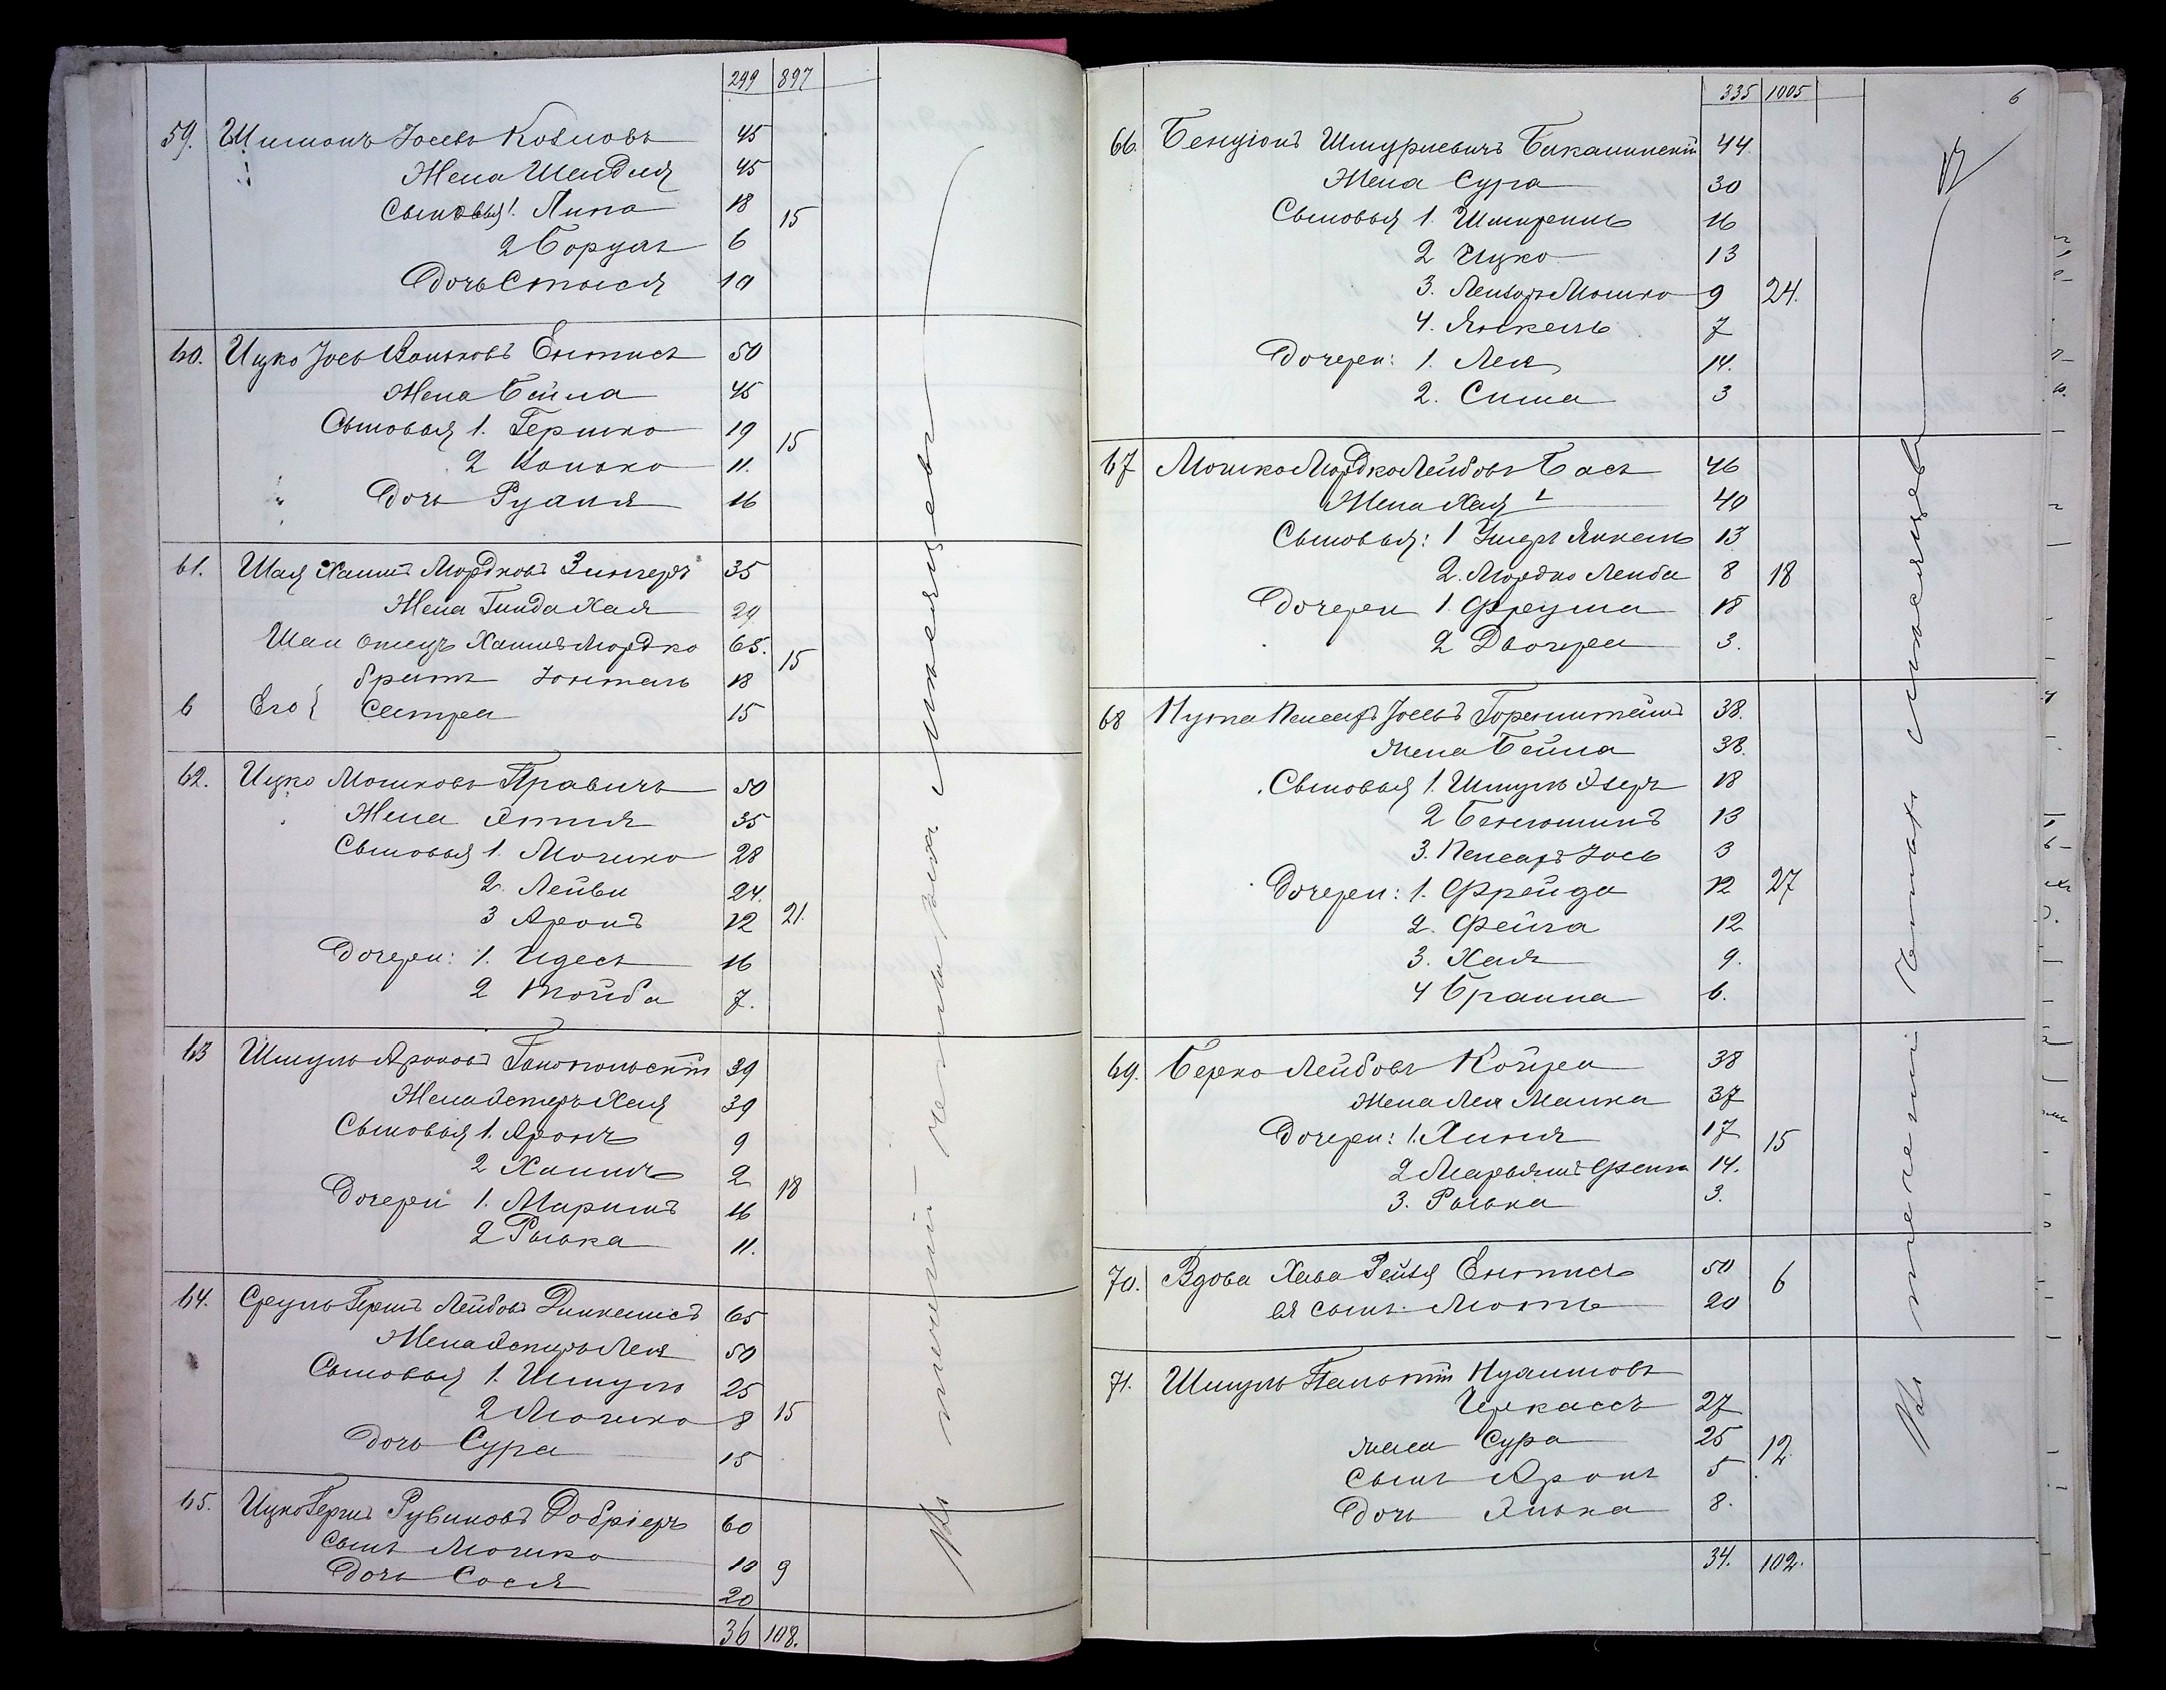 299 897
59. Шимонъ Іосевъ Козловъ 45
Жена Шендля 45
Сыновья 1. Липа 18
15
2 Борухъ 6
Дочь Стыся 10
60. Ицко Іось Воньковъ Ентисъ 50
Жена Бейла 45
Сыновья 1. Гершко 19
15
2 Вонько 11.
Дочь Рухля 16
61. Шая Хаимъ Мордковъ Зингеръ 35
Жена Гинда Хая 29
Шаи отецъ Хаимъ Мордко 65.
15
братъ Іонтель 18
6 Его { сестра 15
62. Ицко Мошковъ Правичъ 50
Жена 35
Сыновья 1. Мошко 28
2. Лейви 24.
3 Аронъ 12 21.
Дочери: 1. Идесъ 16
2 Тойба 7.
63 Шмуль Ароновъ 39
Жена Эстеръ Хая 39
Сыновья 1. Аронъ 9
2 Хаимъ 2
18
Дочери 1. Маримъ 16
2 Рывка 11.
64. Сруль Гершъ Лейбовъ 65
Жена Эстеръ Лея 50
Сыновья 1. Шмуль 25
2 Мошко 8 15
Дочь Сура 15
65. Ицко Гершъ Рувиновъ Добріеръ 60
сынъ Мошко 10 9
Дочь Сося 20
36 108.
въ теченіи четырехъ мѣсяцевъ
335 1005 6
66. Бенціонъ Шмуриевичъ 44.
Жена Сура 30
Сыновья 1. 16
2 Ицко 13
3. Лейзоръ Мошко 9 24.
4. Янкель 7
Дочери: 1. Лея 14.
2. Сима 3
67 Мошко Мордко Лейбовъ Басъ 46
Жена Хая 40
Сыновья: 1 Ушеръ Янкель 13
2. Мордко Лейба 8 18
Дочери 1. Фрума 18
2 Двойра 3.
68 Нута Пейсахъ Іосевъ Горенштейнъ 38.
жена Бейла 38.
Сыновья 1. Шмуль Эзеръ 18
2 Беньюминъ 13
3. Пейсахъ Іось 3
Дочери: 1. Фрейда 12 27
2. Фейга 12
3. Хая 9.
4 Браина 6.
69. Берко Лейбовъ Койфра 38
жена Лея Малка 37
Дочери: 1. Хиня 17
15
2 Марьямъ Фейга 14.
3. Рывка 3.
70. Вдова Хава Рейзя Ентисъ 50
6
ея сынъ Моть 20
71. Шмуль Пальтій Нухимовъ
Черкасъ 27
жена Сура 25
12.
сынъ Аронъ 5
Дочь Элька 8.
34. 102.
въ теченіи четырехъ мѣсяцевъ